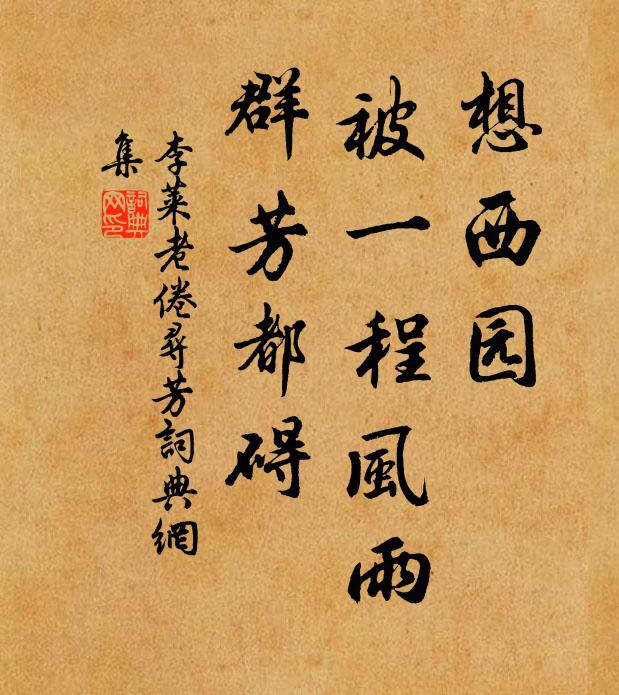 想西园
被一程風雨
群芳都碍
李萊老倦尋芳詞典網
集
詞典
网印